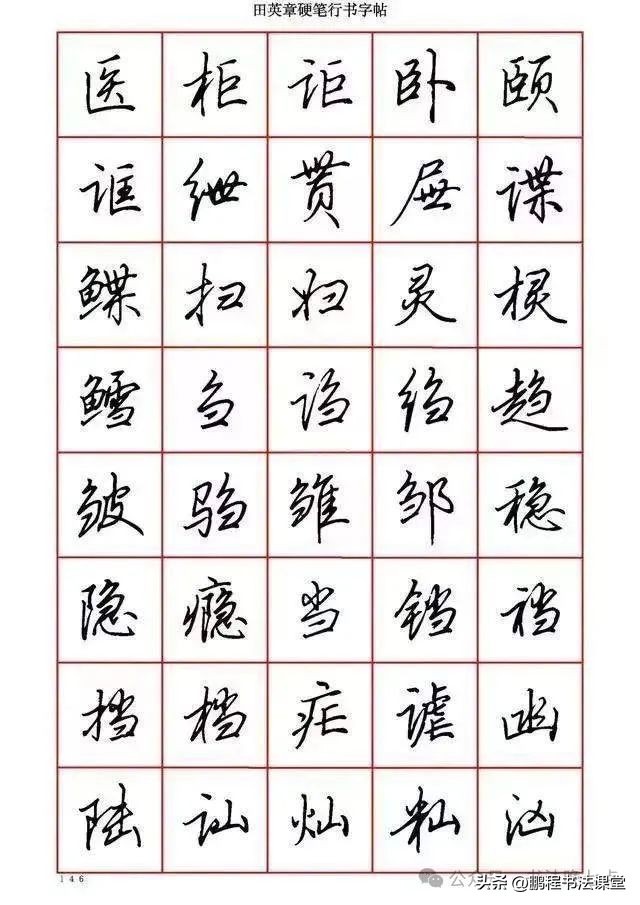 田英章硬笔行书字帖
医柜讵卧颐
诓绁贳屉谍
鲽扫妇灵棂
鳕刍诌绉趋
皱驺雏邹稳
隐瘾当铛裆
挡档疟谑幽
陆讪灿籼汹
146
头条@鹏程书法课堂